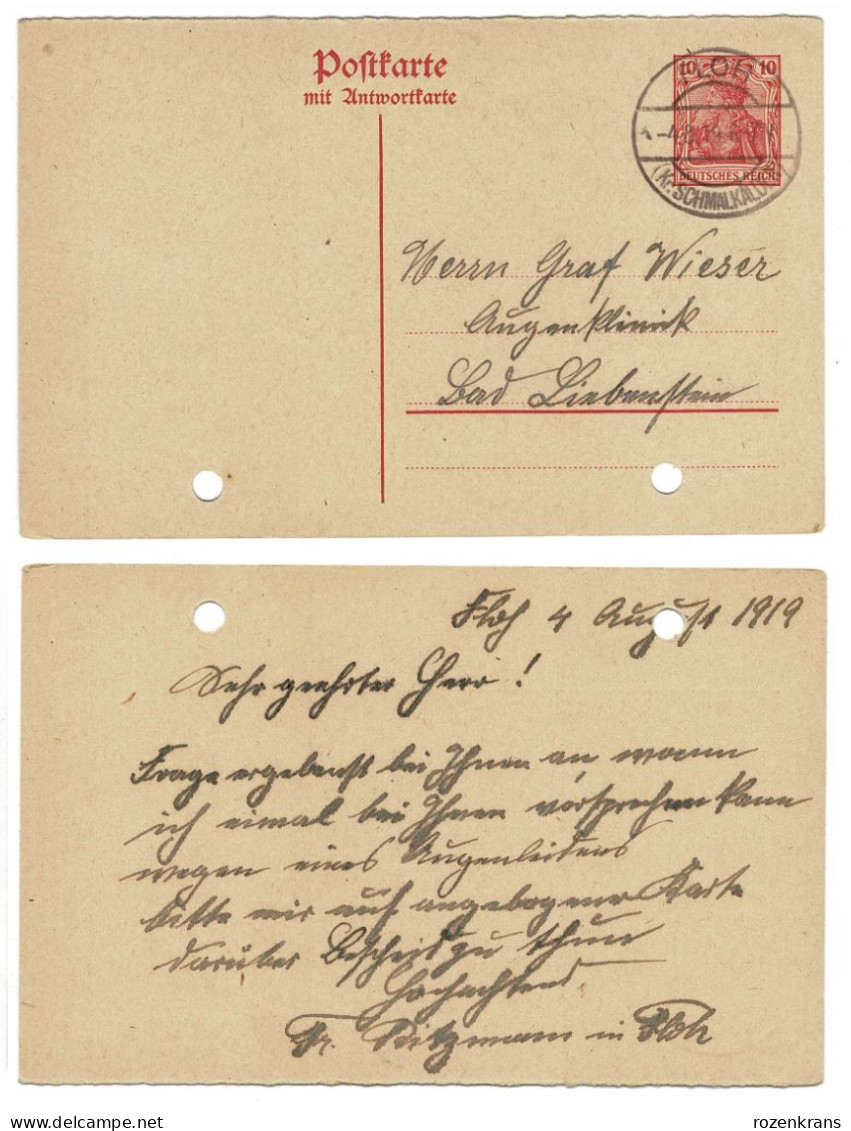 Postkarte
mit Antwortkarte
10 10
DEUTSCHES REICH
FLOH
-4.8.19.
(Kr. SCHMALKALDEN)
Herrn Graf Wieser
Augenklinick
Bad Liebenstein
Floh 4 August 1919
Sehr geehrter Herr!
Frage ergebenst bei Ihnen an wann
ich eimal bei Ihnen vorsprechen kann
wegen eines Augenleidens
bitte mir auf angebogener Karte
darüber Bescheid zu thun
Hochachtend
Fr. Ritzmann in Floh
rozenkrans